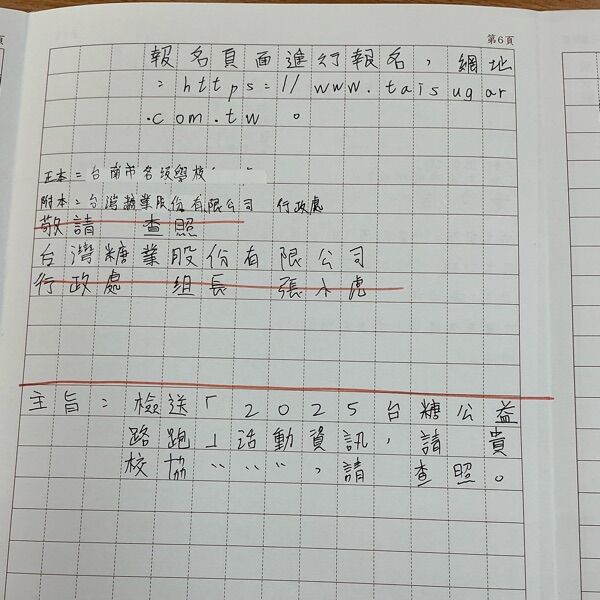 第6頁
報名頁面進行報名，網址
：https://www.taisugar
.com.tw。
正本：台南市各級學校
附本：台灣糖業股份有限公司 行政處
敬請 查照
台灣糖業股份有限公司
行政處 組長 張小虎
主旨：檢送「2025台糖公益
路跑」活動資訊，請 貴
校協〃〃〃，請 查照。
頁